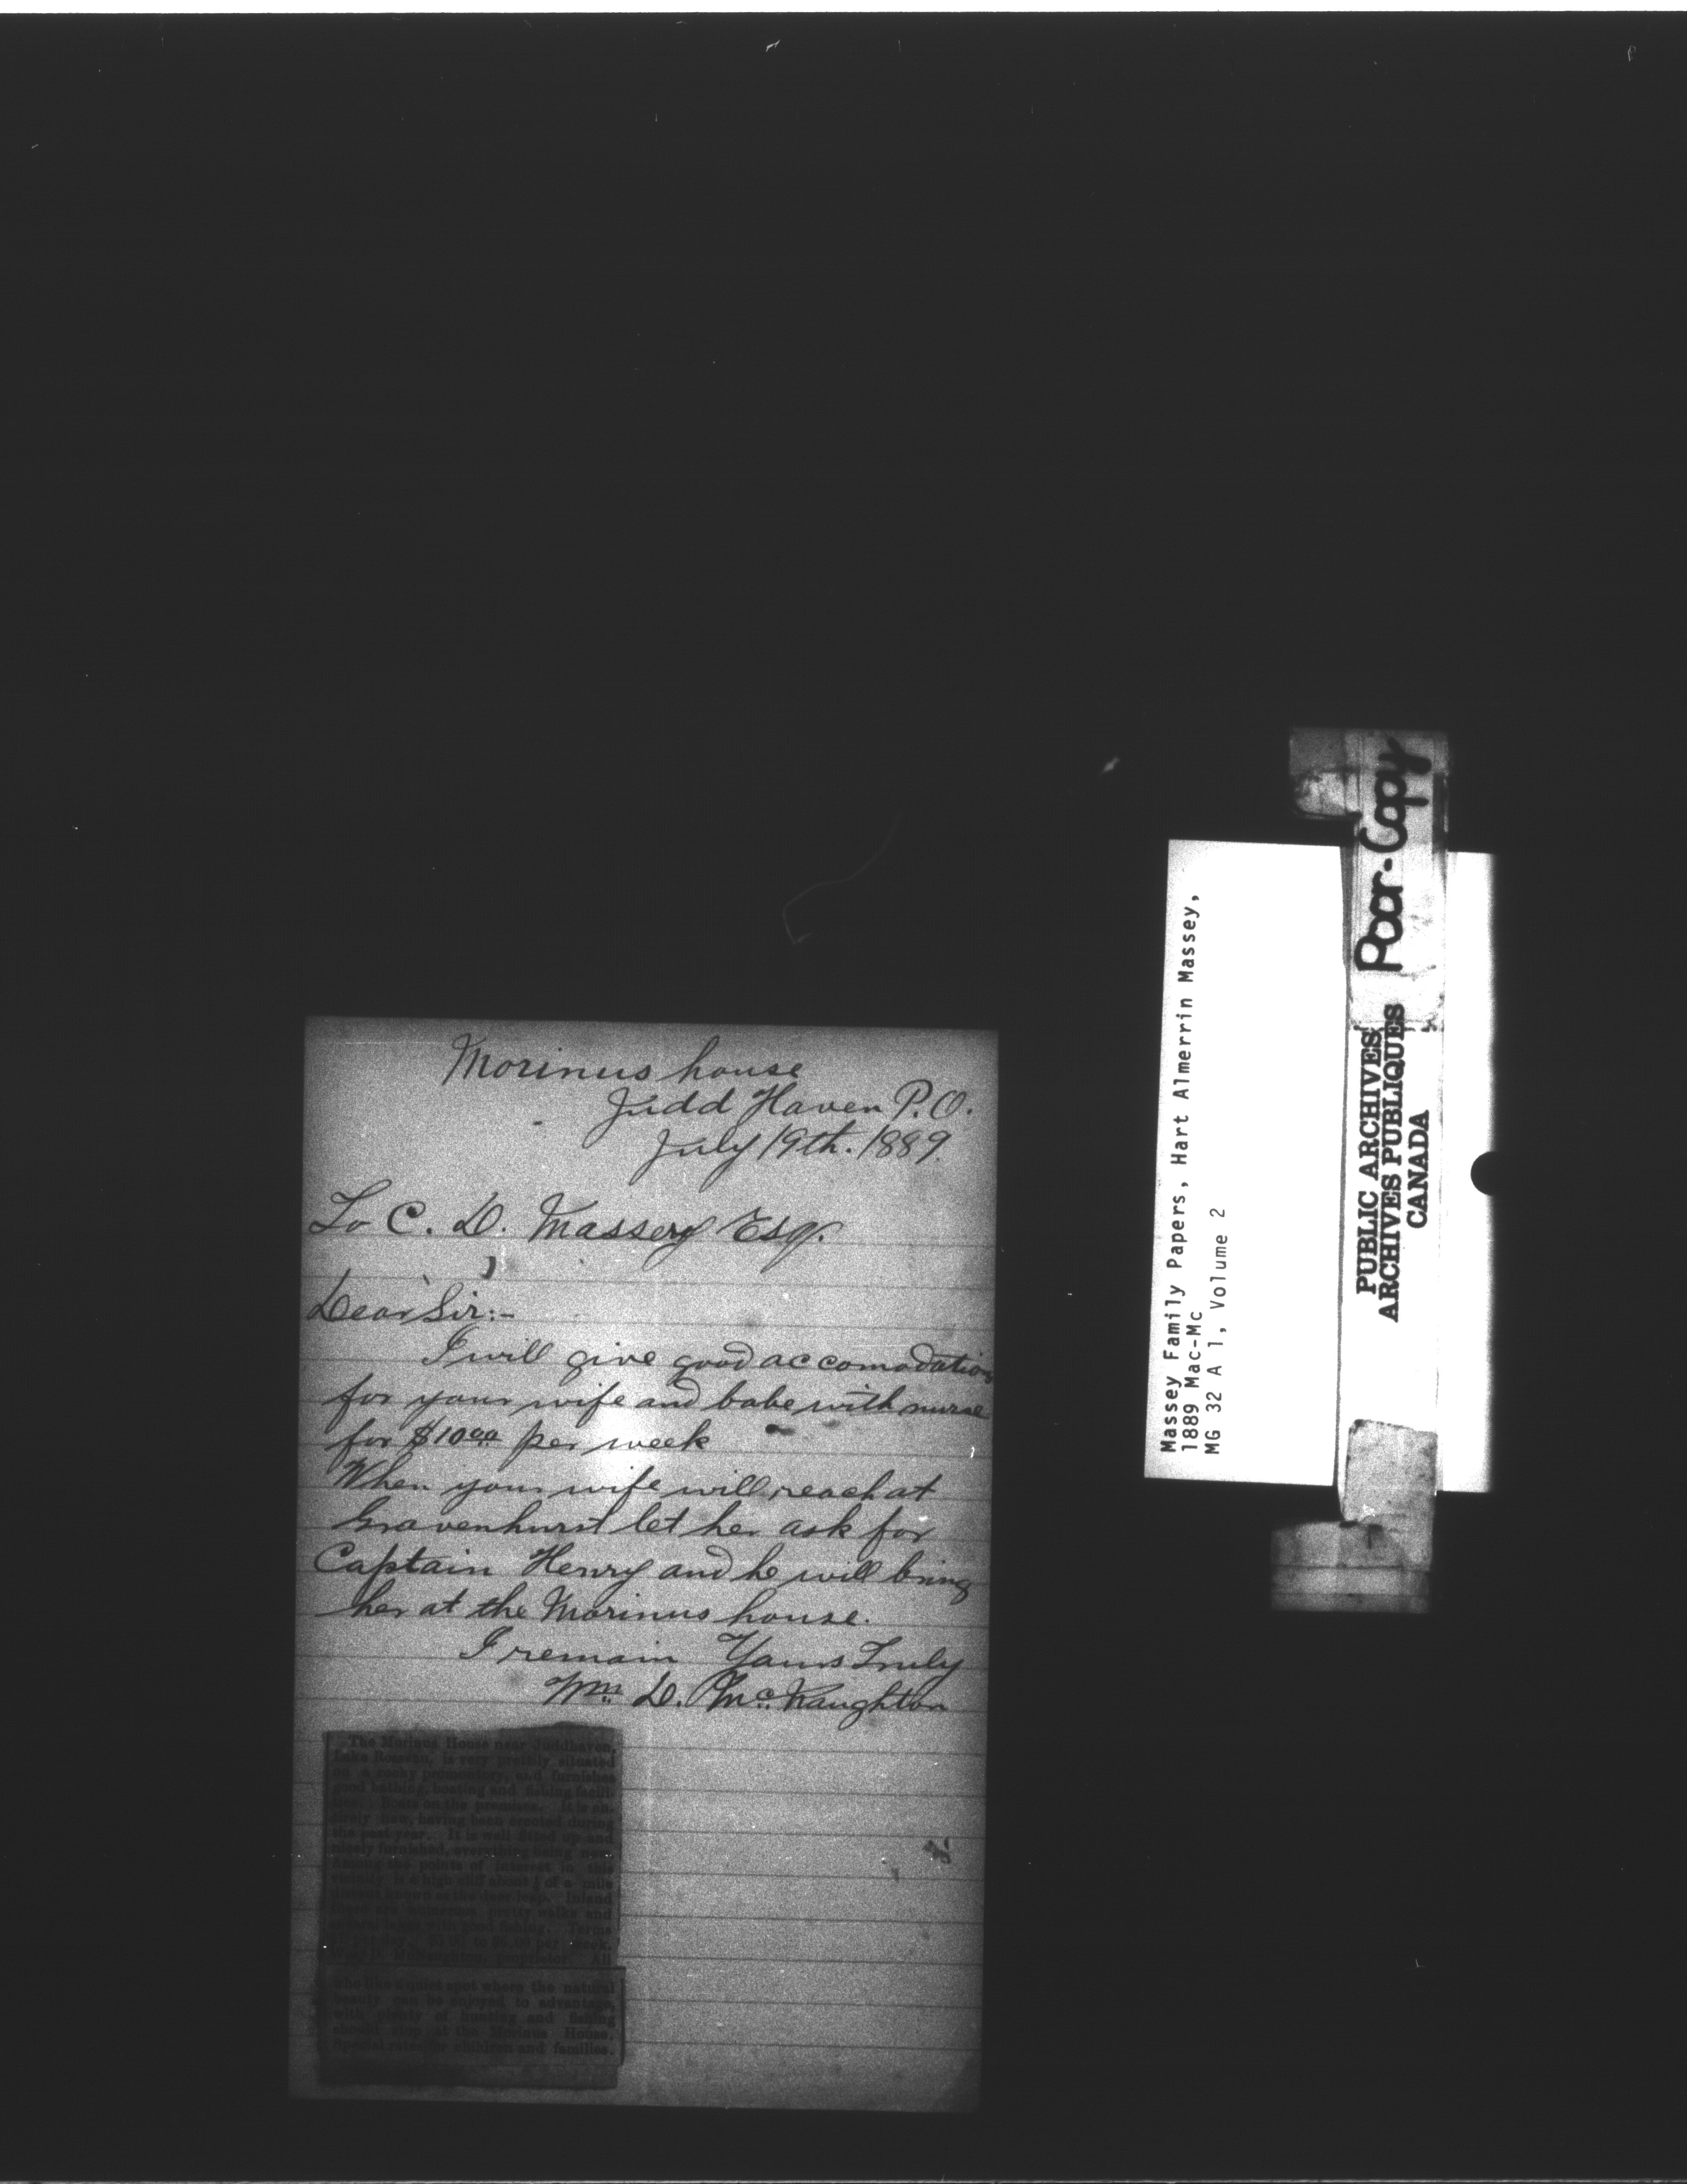 Morinus house
Judd Haven P.O.
July 19th. 1889.
To C. D. Massey Esq.
Dear Sir:-
I will give good accomodation
for your wife and babe with nurse
for $10.00 per week
When your wife will reach at
Gravenhurst let her ask for
Captain Henry and he will bring
her at the Morinus house.
I remain Yours Truly
Wm. D. McNaughton
The Morinus House near Juddhaven,
Lake Rosseau, is very prettily situated
on a rocky promontory, and furnishes
good bathing, boating and fishing facili-
ties. Boats on the premises. It is en-
tirely new, having been erected during
the past year. It is well fitted up and
nicely furnished, everything being new.
Among the points of interest in this
vicinity is a high cliff about of a mile
distant known as the deer leap. Inland
there are numerous pretty walks and
natural lakes with good fishing. Terms
per day, to per week.
McNaughton, proprietor. All
who like a quiet spot where the natural
beauty can be enjoyed to advantage,
with plenty of hunting and fishing
should stop at the Morinus House.
Special rates for children and families.
Massey Family Papers, Hart Almerrin Massey,
1889 Mac-Mc
MG 32 A 1, Volume 2
Poor-Copy
PUBLIC ARCHIVES
ARCHIVES PUBLIQUES
CANADA